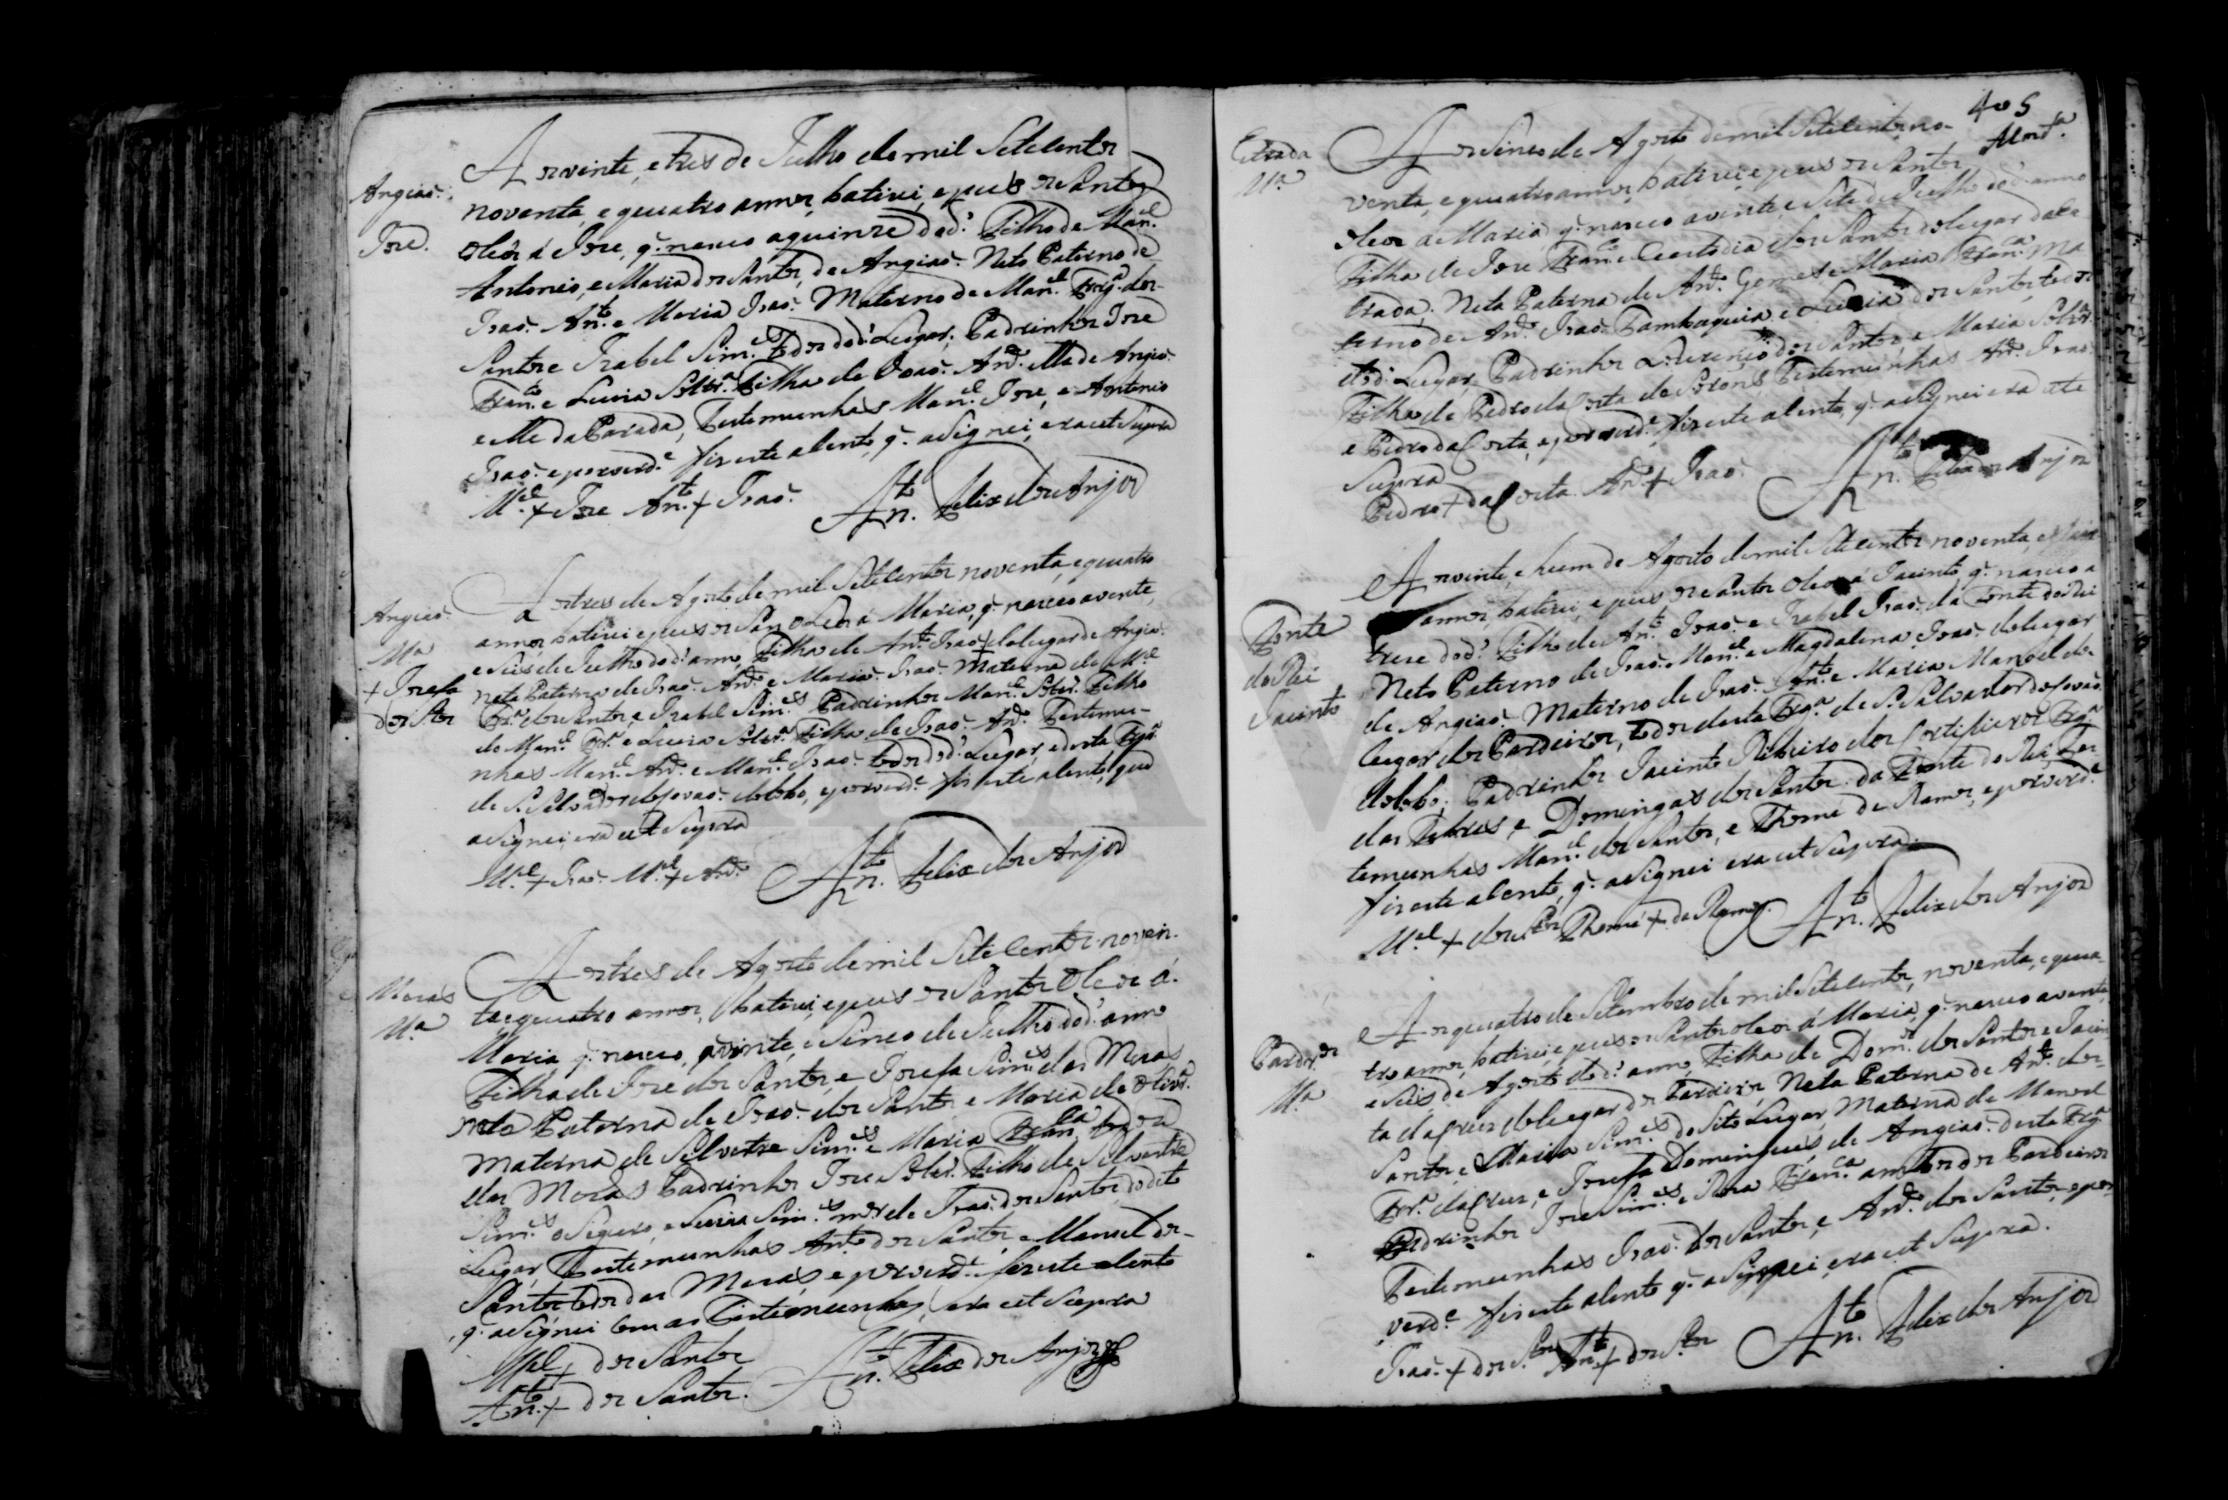 Angiaõ.
Joze.
Aos vinte, e tres de Julho de mil Setecentos
noventa, e quatro annos, batizei, e pus os Santos
oleos á Joze, q. nasceo a quinze do dº. Filho de Man.el
Antonio, e Maria dos Santos, de Angiaõ. Neto Paterno de
Joaõ. An.to e Maria Joaõ. Materno de Man.el Frz. dos
Santos e Izabel Sim.es todos do dº Lugar, Padrinhos Joze
Fran.co e Luiza Soltr.a Filha de Joaõ. An.to
e da Parada, Testemunhas Man.el Joze, e Antonio
Joaõ. e por verd.e fis este asento, q. asignei, era ut Supra
M.el + Joze An.to + Joaõ. An.to Felix dos Anjos
Angiaõ.
M.a
+ Josefa
dos S.tos
Aos tres de Agosto de mil Setecentos noventa, e quatro
annos, batizei e pus os S.tos oleos á Maria, q. nasceo a vente,
e Seis de Julho do dº. anno, Filha de An.to Joaõ. do lugar de Angiaõ.
neta Paterna de Joaõ. An.to e Maria Joaõ. Materna de M.el
Frz. dos Santos e Izabel Sim.es Padrinhos Man.el Soltr.o Filho
de Man.el Fr.a e Luiza Soltr.a Filha de Joaõ. An.to Testemu-
nhas Man.el An.to e Man.el Joaõ. todos do dº Lugar, e desta Frg.a
de S. Salvador do Covaõ. do Lobo, e por verd.e fis este asento, que
asignei, era ut Supra
M.el + Joaõ. M.el + An.to An.to Felix dos Anjos
Moras
M.a
Aos tres de Agosto de mil Setecentos noven-
ta e quatro annos, batizei, e pus os Santos Oleos á
Maria, q. nasceo, a vinte, e Sinco de Julho do dº. anno
Filha de Joze dos Santos, e Josefa Sim.es das Moras
neta Paterna de Joaõ. dos Santos e Maria de Olivr.a
Materna de Selvestre Sim.es e Maria Fran.ca todos
das Moras Padrinhos Joze Soltr.o Filho de Selvestre
Sim.es o Seguro, e Luiza Sim.es m.er de Joaõ. dos Santos, do dito
Lugar, Testemunhas An.to dos Santos, e Manuel dos
Santos todos das Moras, e por verd.e fis este asento
q. asignei com as Testemunhas, era ut Supra
M.el + dos Santos
An.to + dos Santos. An.to Felix dos Anjos
405
Estrada
M.a
Aos Sinco de Agosto de mil Setecentos no-
venta, e quatro annos, batizei, e pus os Santos
oleos a Maria, q. nasceo a vente, e Sete de Julho do dº. anno
Filha de Joze Fran.co e Custodia dos Santos do lugar da Es-
trada. Neta Paterna de An.to Gomes e Maria Fran.ca Ma
terno de An.to Joaõ. Tambaquia e Luzia dos Santos, todos
do dº. Lugar, Padrinhos Lourenço dos Santos e Maria Soltr.a
Filha de Pedro da Costa de Testemunhas An.to Joaõ.
e Pedro da Costa, e por verd.e fis este asento, q. asignei era ute
Supra
Pedro + da Costa An.to + Joaõ. An.to Felix dos Anjos
Fonte
do Rei
Jacinto
Aos vinte, e hum de Agosto de mil Setecentos noventa, e
annos, batizei, e pus os Santos Oleos á Jacinto, q. nasceo a
treze do dº. Filho de An.to Joaõ. e Izabel Joaõ. da Fonte do Rei
Neto Paterno de Joaõ. Man.el e Magdalena Joaõ. do lugar
de Angiaõ. Materno de Joaõ. An.to e Maria Manoel do
lugar dos Cardeiros, todos desta Frg.a de S. Salvador do Covaõ.
do Lobo; Padrinhos Jacinto Ribeiro dos Frg.a
das Febres, e Domingas dos Santos da Fonte do Rei, Tes-
temunhas Man.el dos Santos, e Thomé de Ramos, e por verd.e
fis este asento, q. asignei era ut Supra.
M.el + dos S.tos Thomé + de Ramos. An.to Felix dos Anjos
Cardr.os
M.a
Aos quatro de Setembro de mil Setecentos, noventa, e qua-
tro annos, batizei, e pus os Santos oleos á Maria, q. nasceo a vente
e Seis de Agosto do dº. anno Filha de Dom.os dos Santos e Jacin-
ta da Crus do lugar dos Cardeiros, Neta Paterna de An.to dos
Santos, e Maria Sim.es do dito Lugar, Materna de Manoel
Fr.a da Crus, e Josefa Domingues, de Angiaõ. desta Frg.a
Padrinhos Joze Sim.es e Roza Fran.ca ambos dos Cardeiros
Testemunhas Joaõ. dos Santos, e An.to dos Santos, e por
verd.e fis este asento q. asignei, era ut Supra.
Joaõ. + dos S.tos An.to + dos S.tos An.to Felix dos Anjos